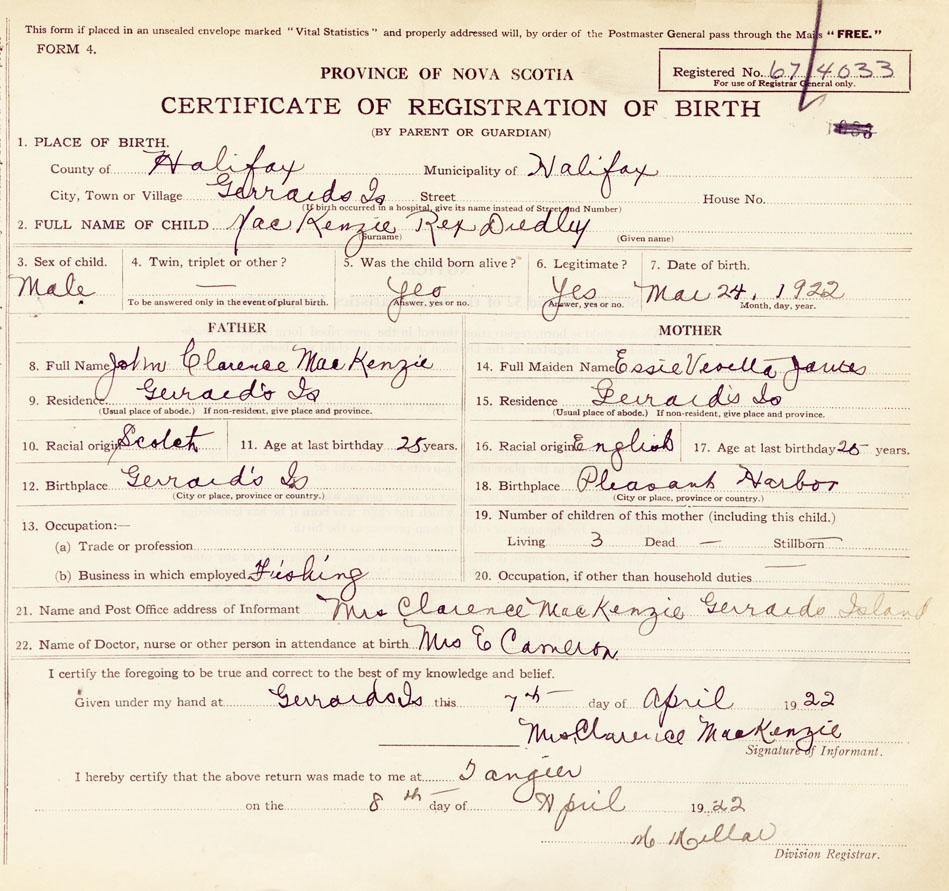 This form if placed in an unsealed envelope marked "Vital Statistics" and properly addressed will, by order of the Postmaster General pass through the Mails "FREE."
FORM 4.
PROVINCE OF NOVA SCOTIA
Registered No. 67/4033
For use of Registrar General only.
CERTIFICATE OF REGISTRATION OF BIRTH
(BY PARENT OR GUARDIAN)
1. PLACE OF BIRTH.
County of Halifax Municipality of Halifax
City, Town or Village Gerraids Is Street House No.
(If birth occurred in a hospital, give its name instead of Street and Number)
2. FULL NAME OF CHILD MacKenzie Rex Dudley
(Surname) (Given name)
3. Sex of child. 4. Twin, triplet or other? 5. Was the child born alive? 6. Legitimate? 7. Date of birth.
Male — Yes Yes Mar 24, 1922
To be answered only in the event of plural birth. Answer, yes or no. Answer, yes or no. Month, day, year.
FATHER MOTHER
8. Full Name John Clarence MacKenzie 14. Full Maiden Name Essie
9. Residence Gerraid's Is 15. Residence Gerraid's Is
(Usual place of abode.) If non-resident, give place and province. (Usual place of abode.) If non-resident, give place and province.
10. Racial origin Scotch 11. Age at last birthday 25 years. 16. Racial origin English 17. Age at last birthday 25 years.
12. Birthplace Gerraid's Is 18. Birthplace Pleasant Harbor
(City or place, province or country.) (City or place, province or country.)
13. Occupation:— 19. Number of children of this mother (including this child.)
(a) Trade or profession Living 3 Dead — Stillborn —
(b) Business in which employed Fishing 20. Occupation, if other than household duties —
21. Name and Post Office address of Informant Mrs Clarence MacKenzie Gerraids Island
22. Name of Doctor, nurse or other person in attendance at birth Mrs E Cameron
I certify the foregoing to be true and correct to the best of my knowledge and belief.
Given under my hand at Gerraids Is this 7th day of April 1922
Mrs Clarence MacKenzie
Signature of Informant.
I hereby certify that the above return was made to me at Tangier
on the 8th day of April 1922
Millar
Division Registrar.